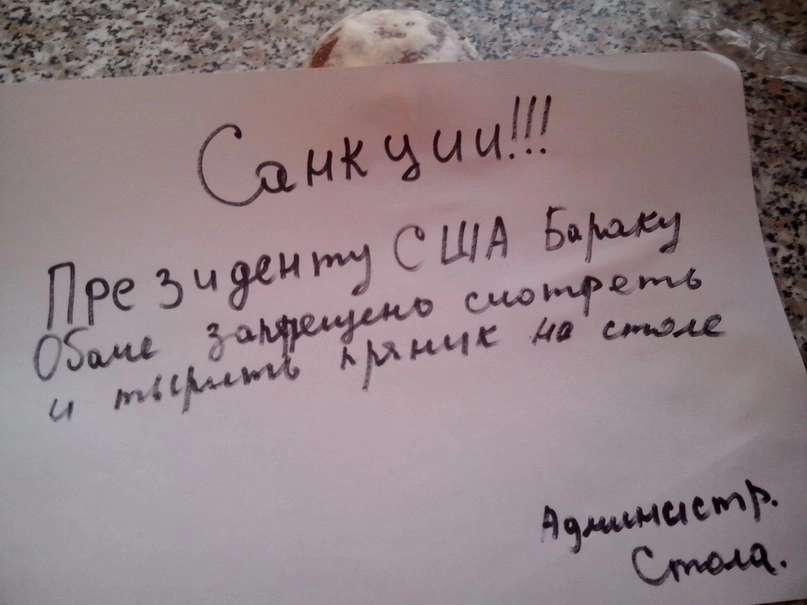 Санкции!!!
Президенту США Бараку
Обаме запрещено смотреть
и тырить пряник на столе
Администр.
Стола.